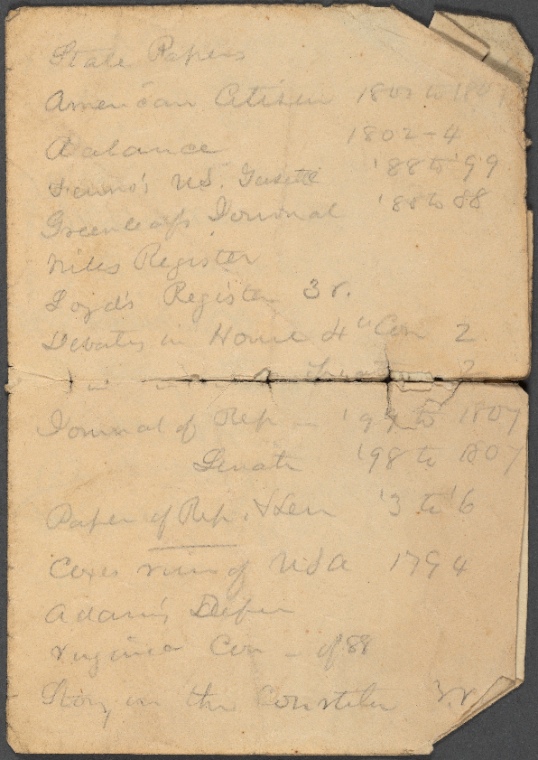 State Papers
American Citizen 1802 to 1807
Balance 1802-4
Fenno's U.S. Gazette '88 to '99
Greenleaf's Journal '88
Niles Register
Loyd's Register 3 v.
Debates in House 4th Con 2
2
Journal of Rep - '99 to 1807
Senate '98 to 1807
Paper of Rep. & Sen '3 to '6
Coxes view of USA 1794
Adam's Defen
Virginia Con - of 88
Story on the Constitu 3 v.